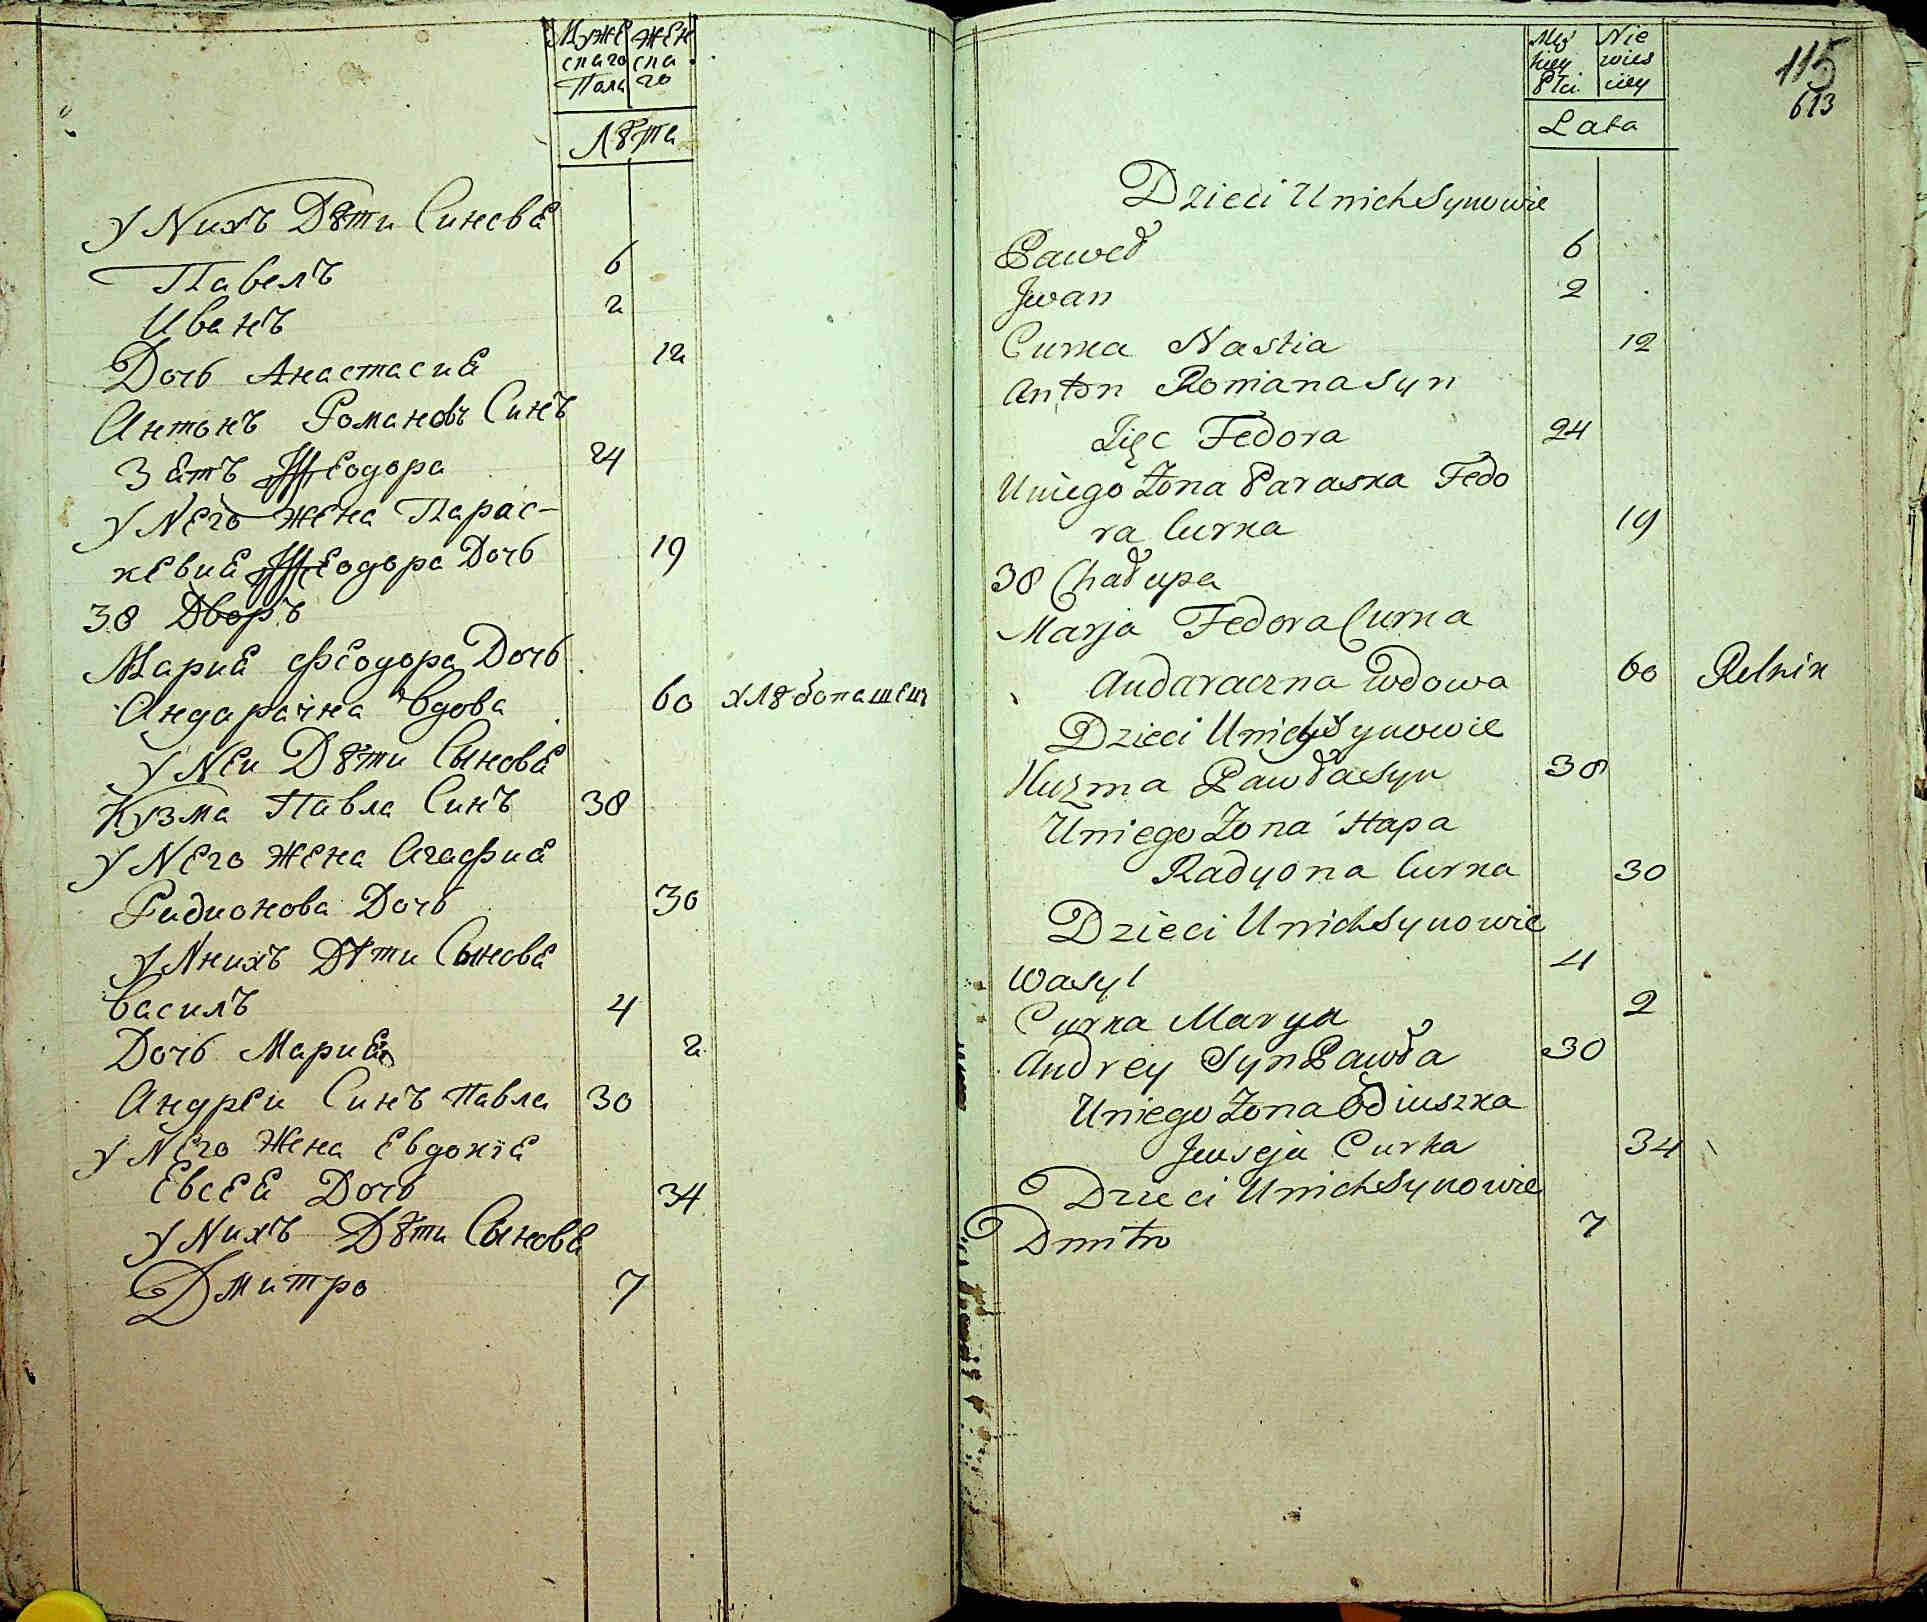 Муже жен
скаго ска
Пола го
Лѣта
У Nихъ Дѣти Синовѣ
Павелъ 6
Иванъ 2
Дочь Анастасиѣ 12
Антонъ Романовъ Синъ
Зѣтъ Ѳеодора 24
У Nего жена Парас-
кевиѣ Ѳеодора Дочь 19
38 Дворъ
Мариѣ Феодора Дочь
Андарачна Вдова 60 хлѣбопашец
У Nеи Дѣти Сыновѣ
Кузма Павла Синъ 38
У Nего жена Агафиѣ
Радионова Дочь 30
У Nнихъ Дѣти Сыновѣ
Василъ 4
Дочь Мариѣ 2
Андреи Синъ Павла 30
У Nего Жена Евдокіѣ
Евсеѣ Дочь 34
У Nихъ Дѣти Сыновѣ
Дмитро 7
Męz Nie
kiey wies
Płci ciey
Lata
115
613
Dzieci Unich Synowie
Paweł 6
Jwan 2
Curka Nastia 12
Anton Romana Syn
Zięc Fedora 24
Uniego Żona Paraska Fedo
ra Curka 19
38 Chałupa
Marja Fedora Curka
Andaraczna Wdowa 60 Rolnik
Dzieci Unich Synowie
Kuzma Pawła Syn 38
Uniego Żona Hapa
Radyona Curka 30
Dzieci Unich Synowie
Wasyl 4
Curka Marya 2
Andrey Syn Pawła 30
Uniego Żona Odiuszka
Jwseja Curka 34
Dzieci Unich Synowie
Dmitro 7